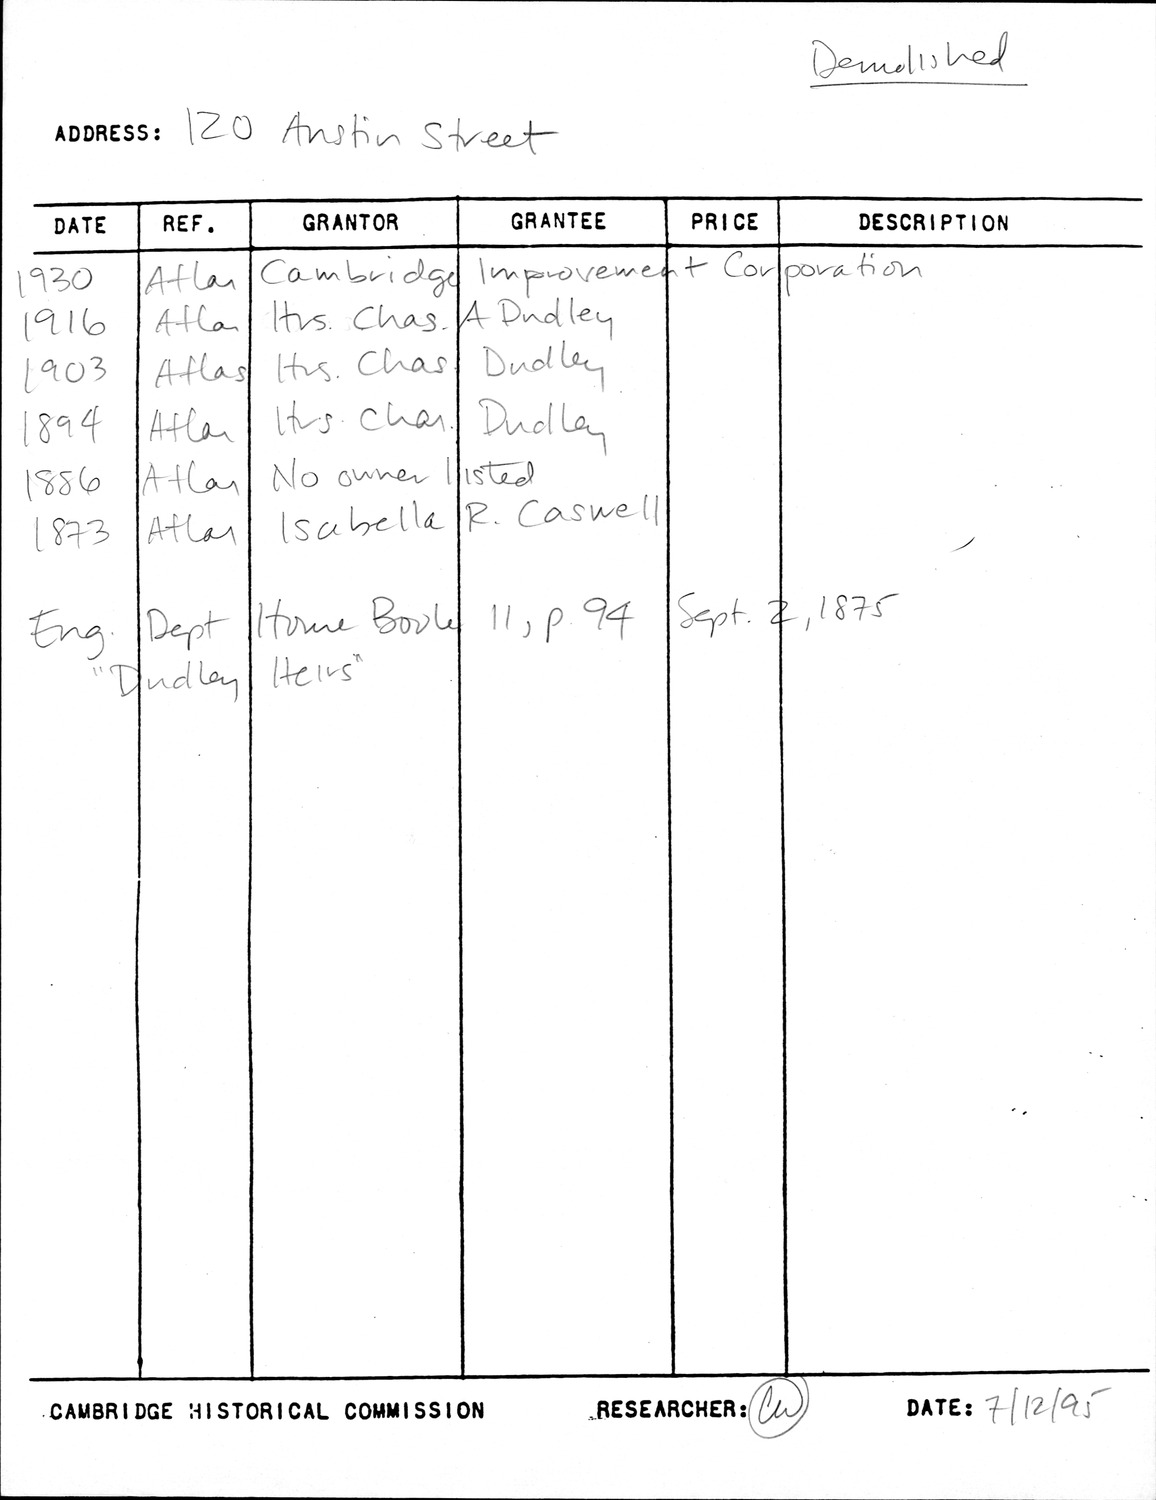 Demolished
ADDRESS: 120 Austin Street
DATE REF. GRANTOR GRANTEE PRICE DESCRIPTION
1930 Atlas Cambridge Improvement Corporation
1916 Atlas Hrs. Chas. A Dudley
1903 Atlas Hrs. Chas Dudley
1894 Atlas Hrs. Chas. Dudley
1886 Atlas No owner listed
1873 Atlas Isabella R. Caswell
Eng. Dept House Book 11, p. 94 Sept. 2, 1875
"Dudley Heirs"
CAMBRIDGE HISTORICAL COMMISSION RESEARCHER: DATE: 7/12/95